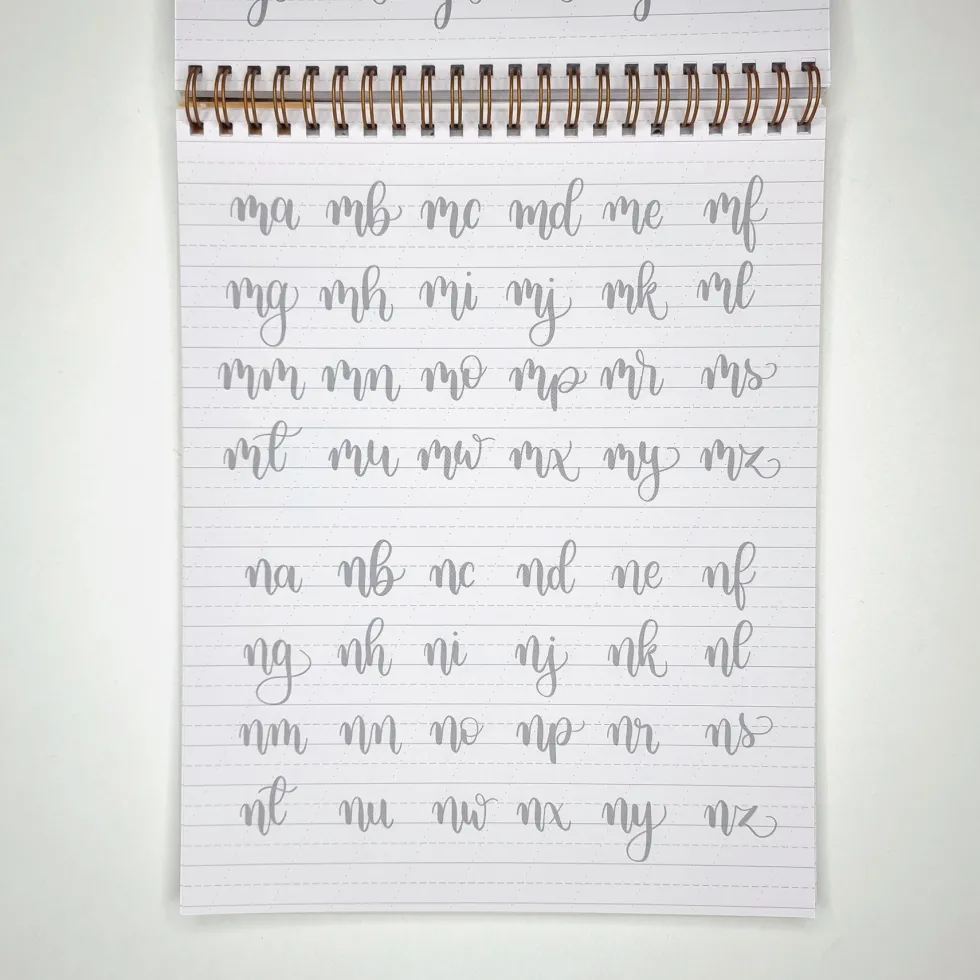 ma mb mc md me mf
mg mh mi mj mk ml
mm mn mo mp mr ms
mt mu mw mx my mz
na nb nc nd ne nf
ng nh ni nj nk nl
nm nn no np nr ns
nt nu nw nx ny nz